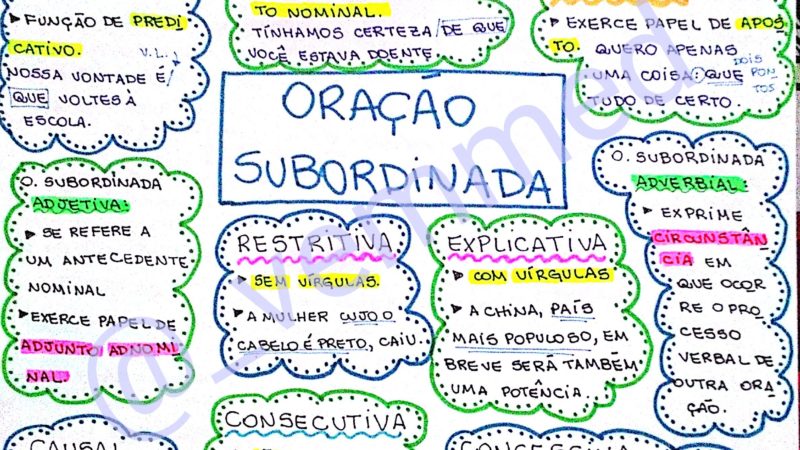 ▸ FUNÇÃO DE PREDI
CATIVO.
V.L.
NOSSA VONTADE É/
QUE VOLTES À
ESCOLA.
TO NOMINAL.
TÍNHAMOS CERTEZA /DE QUE
VOCÊ ESTAVA DOENTE.
▸ EXERCE PAPEL DE APOS
TO. QUERO APENAS
UMA COISA: QUE
DOIS
PON
TOS
TUDO DE CERTO.
ORAÇÃO
SUBORDINADA
O. SUBORDINADA
ADJETIVA:
▸ SE REFERE A
UM ANTECEDENTE
NOMINAL
▸ EXERCE PAPEL DE
ADJUNTO ADNOMI
NAL.
RESTRITIVA
▸ SEM VÍRGULAS.
▸ A MULHER CUJO O
CABELO É PRETO, CAIU.
EXPLICATIVA
▸ COM VÍRGULAS
▸ A CHINA, PAÍS
MAIS POPULOSO, EM
BREVE SERÁ TAMBÉM
UMA POTÊNCIA.
O. SUBORDINADA
ADVERBIAL:
▸ EXPRIME
CIRCUNSTÂN
CIA EM
QUE OCOR
RE O PRO
CESSO
VERBAL DE
OUTRA ORA
ÇÃO.
CAUSAL
CONSECUTIVA
CONCESSIVA